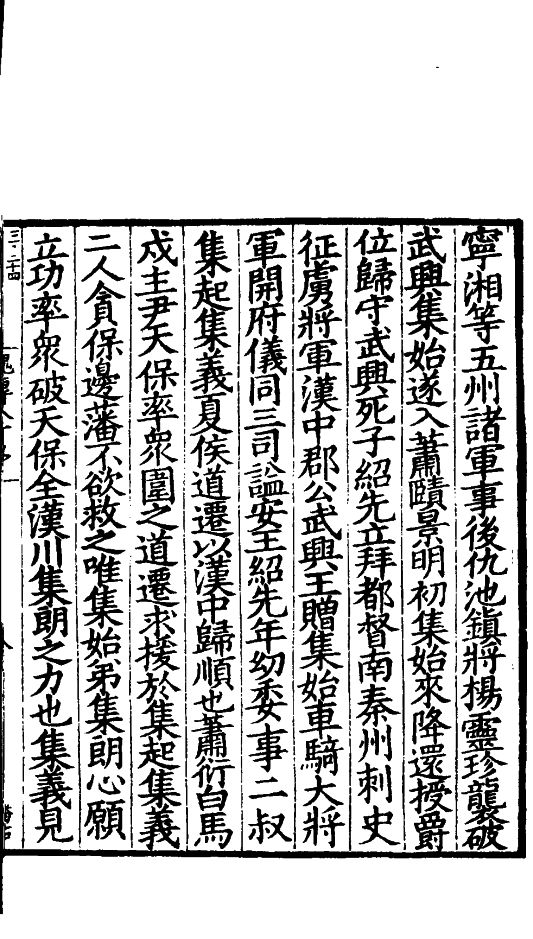 寧湘等五州諸軍事後仇池鎮將楊靈珍襲破
武興集始遂入蕭賾景明初集始來降還授爵
位歸守武興死子紹先立拜都督南秦州刺史
征虜將軍漢中郡公武興王贈集始車騎大將
軍開府儀同三司謚安王紹先年幼委事二叔
集起集義夏侯道遷以漢中歸順也蕭衍白馬
戍主尹天保率衆圍之道遷求援於集起集義
二人貪保邊藩不欲救之唯集始弟集朗心願
立功率衆破天保全漢川集朗之力也集義見
三·二十四